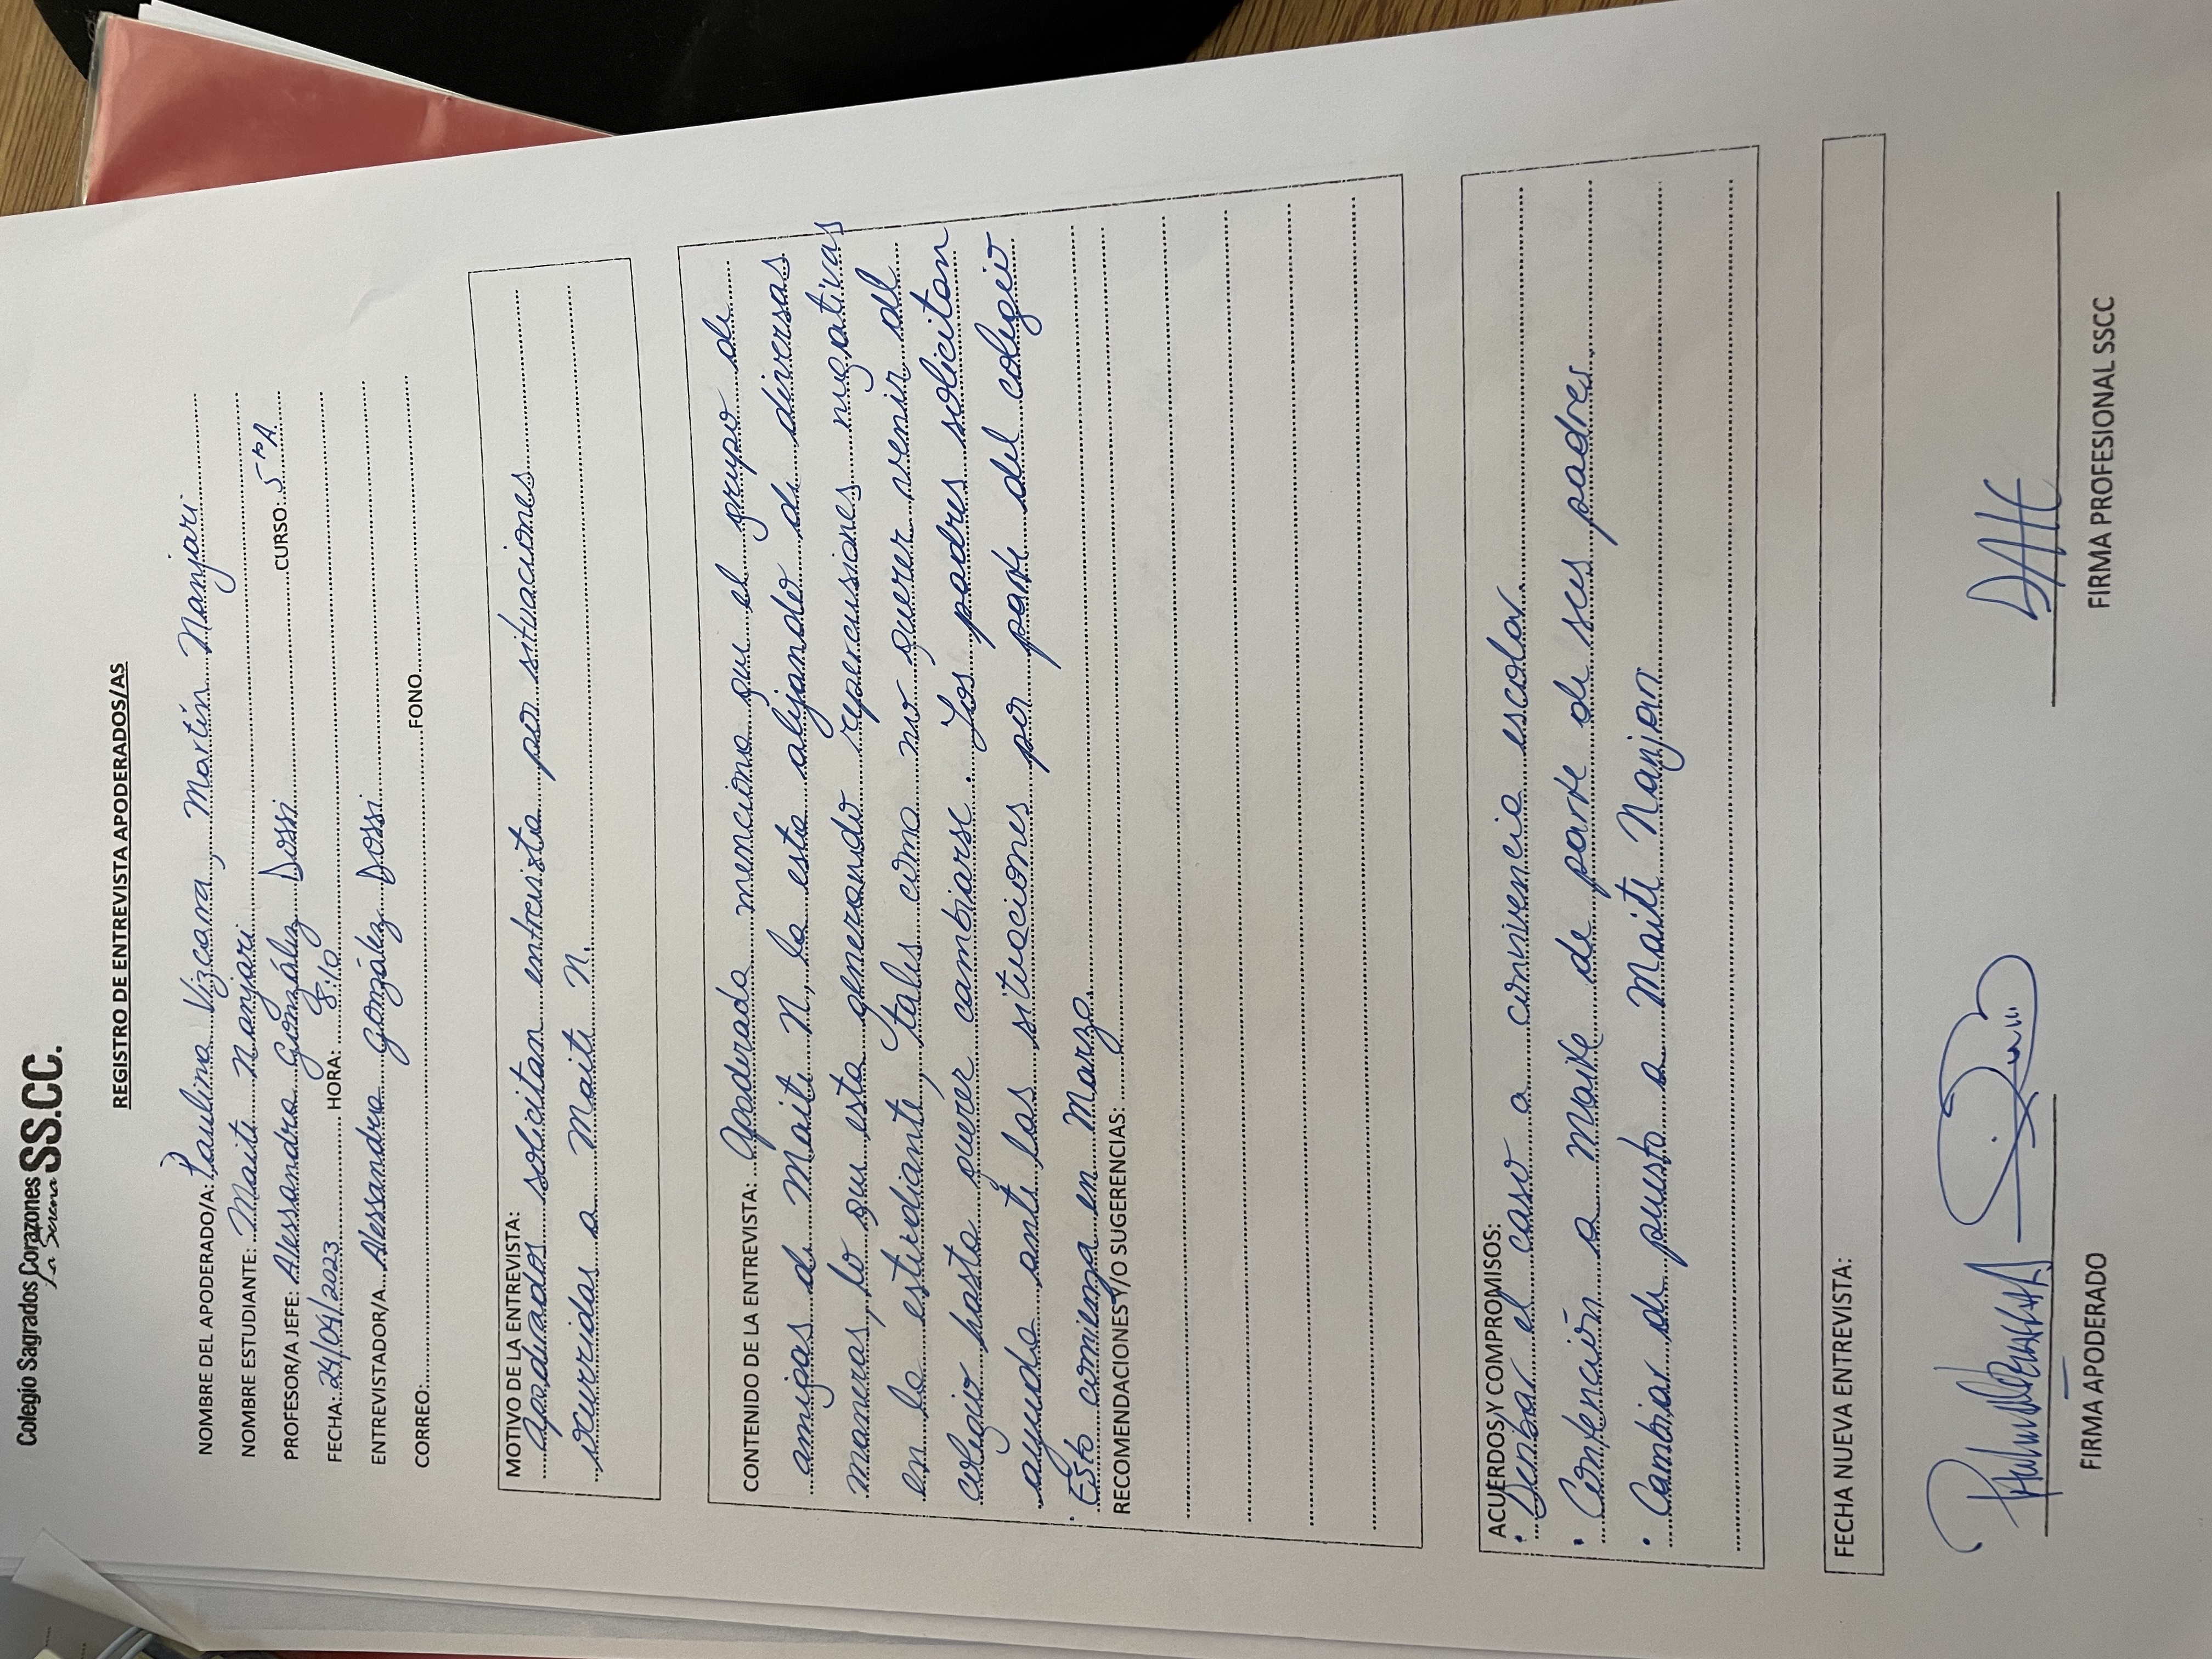 Colegio Sagrados Corazones SS.CC.
La Serena
REGISTRO DE ENTREVISTA APODERADOS/AS
NOMBRE DEL APODERADO/A: Paulina Vizcarra, Martín Nanjari
NOMBRE ESTUDIANTE: Maite Nanjari
PROFESOR/A JEFE: Alessandra González Dossi CURSO: 5ºA
FECHA: 24/04/2023 HORA: 8:10
ENTREVISTADOR/A: Alessandra González Dossi
CORREO: FONO
MOTIVO DE LA ENTREVISTA:
Apoderados solicitan entrevista por situaciones
ocurridas a Maite N.
CONTENIDO DE LA ENTREVISTA: Apoderada menciona que el grupo de
amigas de Maite N, la esta alejando de diversas
maneras, lo que esta generando repercusiones negativas
en la estudiante, tales como no querer venir al
colegio hasta querer cambiarse. Los padres solicitan
ayuda ante las situaciones por parte del colegio
. Esto comienza en Marzo.
RECOMENDACIONES Y/O SUGERENCIAS:
ACUERDOS Y COMPROMISOS:
• Derivar el caso a convivencia escolar.
• Contención a Maite de parte de sus padres.
• Cambiar de puesto a Maite Nanjari
FECHA NUEVA ENTREVISTA:
FIRMA APODERADO FIRMA PROFESIONAL SSCC